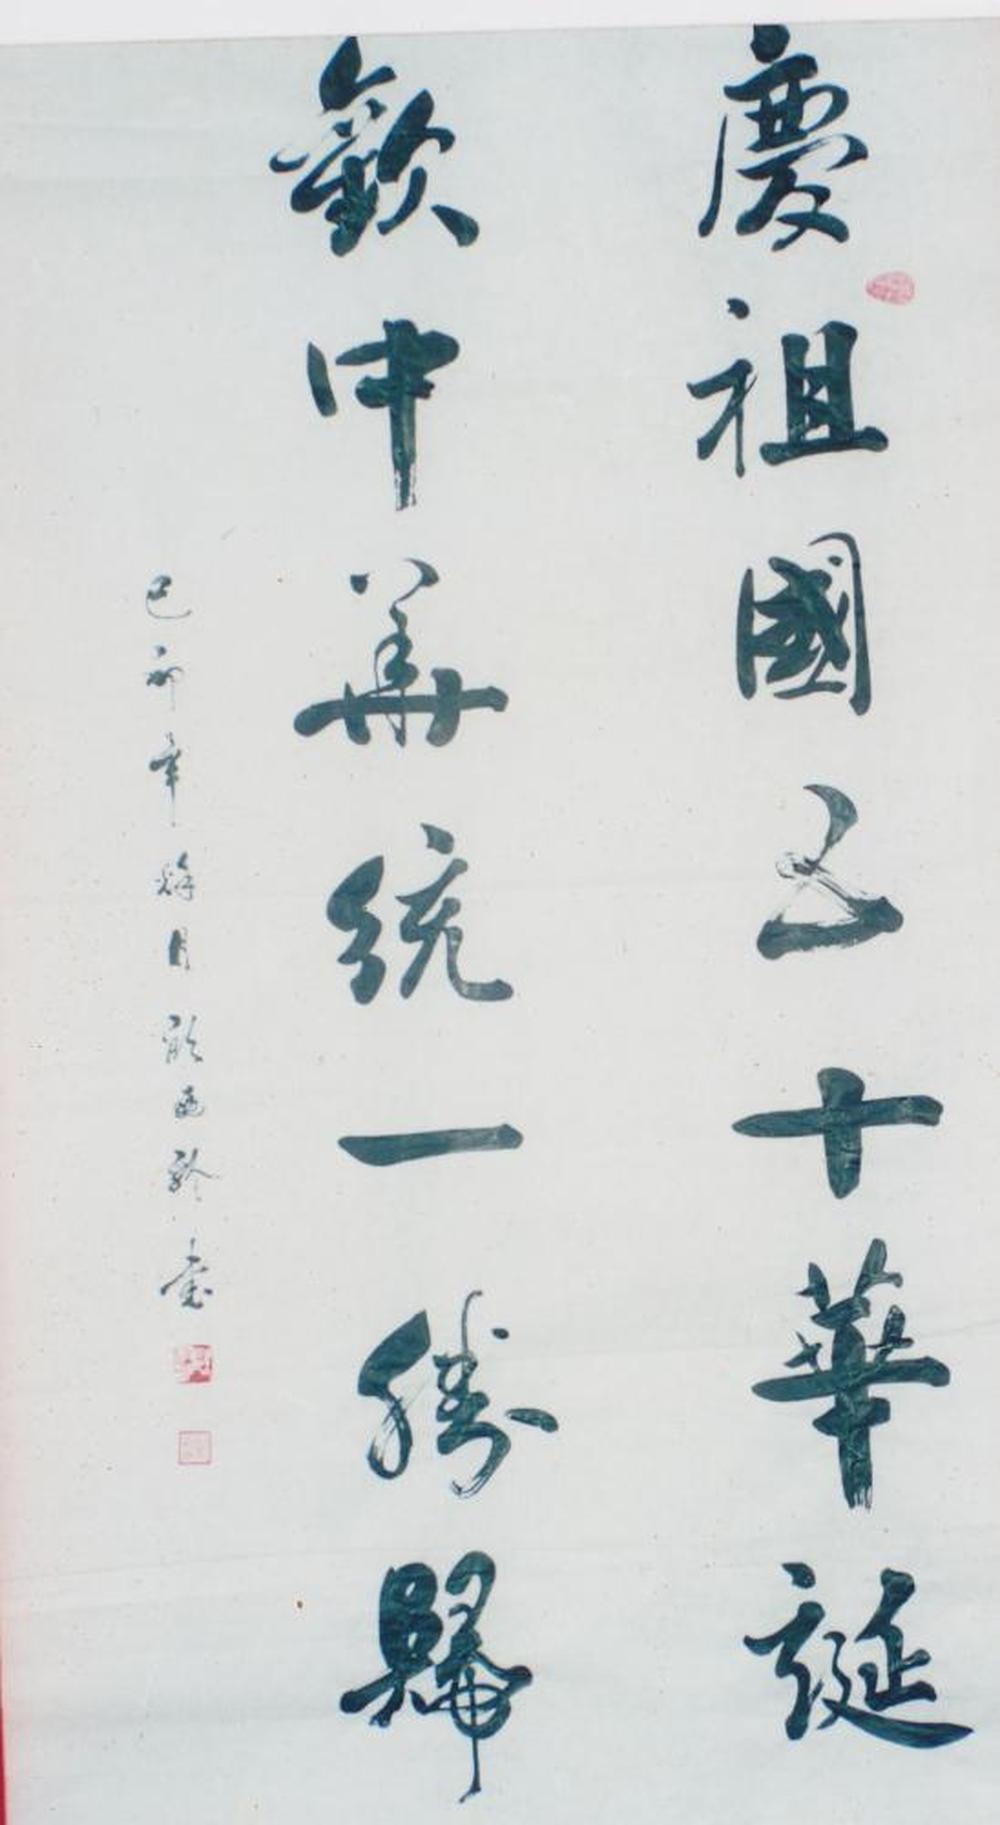 慶祖國五十華誕
歡中華統一勝歸
己卯年 月